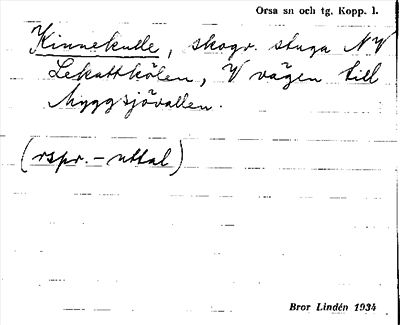 Orsa sn och tg. Kopp. l.
Kinnekulle, skogv. stuga NV
Lekattkölen, V vägen till
Myggsjövallen.
(rspr. - uttal)
Bror Lindén 1934